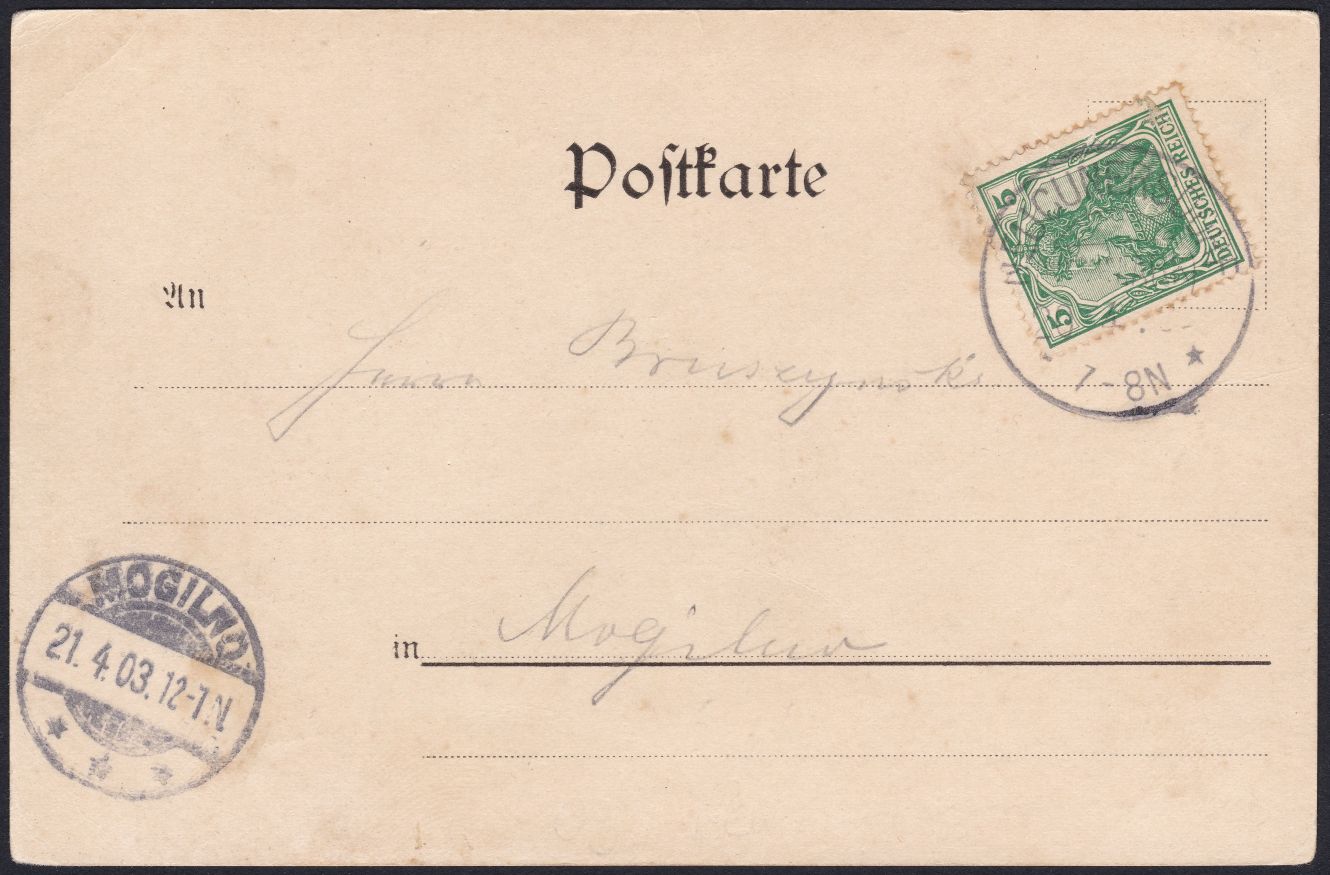 Poſtkarte
An
Herrn Bruszynski
in Mogilno
5 5
DEUTSCHES REICH
7-8N
MOGILNO
21.4.03.12-1N.